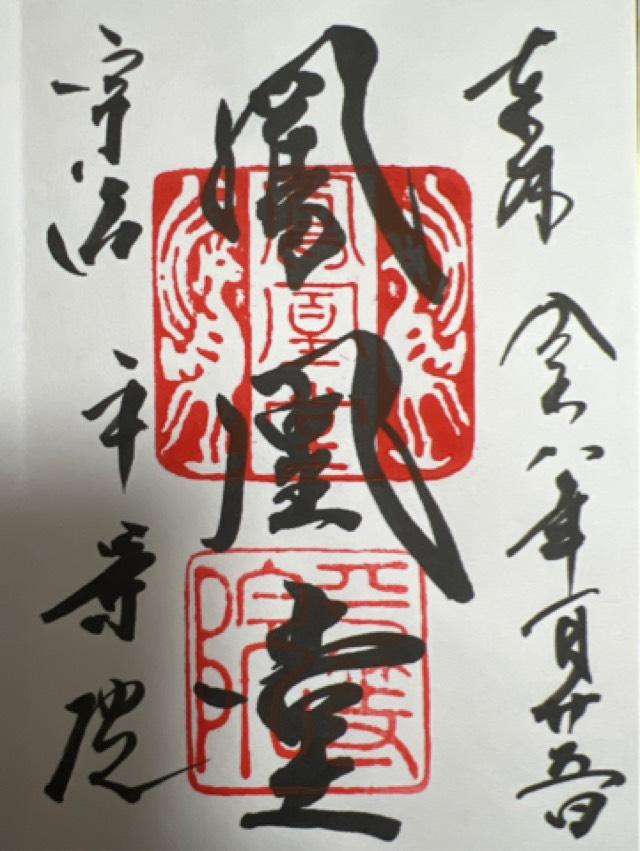 奉拝 令和八年一月廿五日
鳳凰堂
宇治 平等院
鳳凰堂
平等院